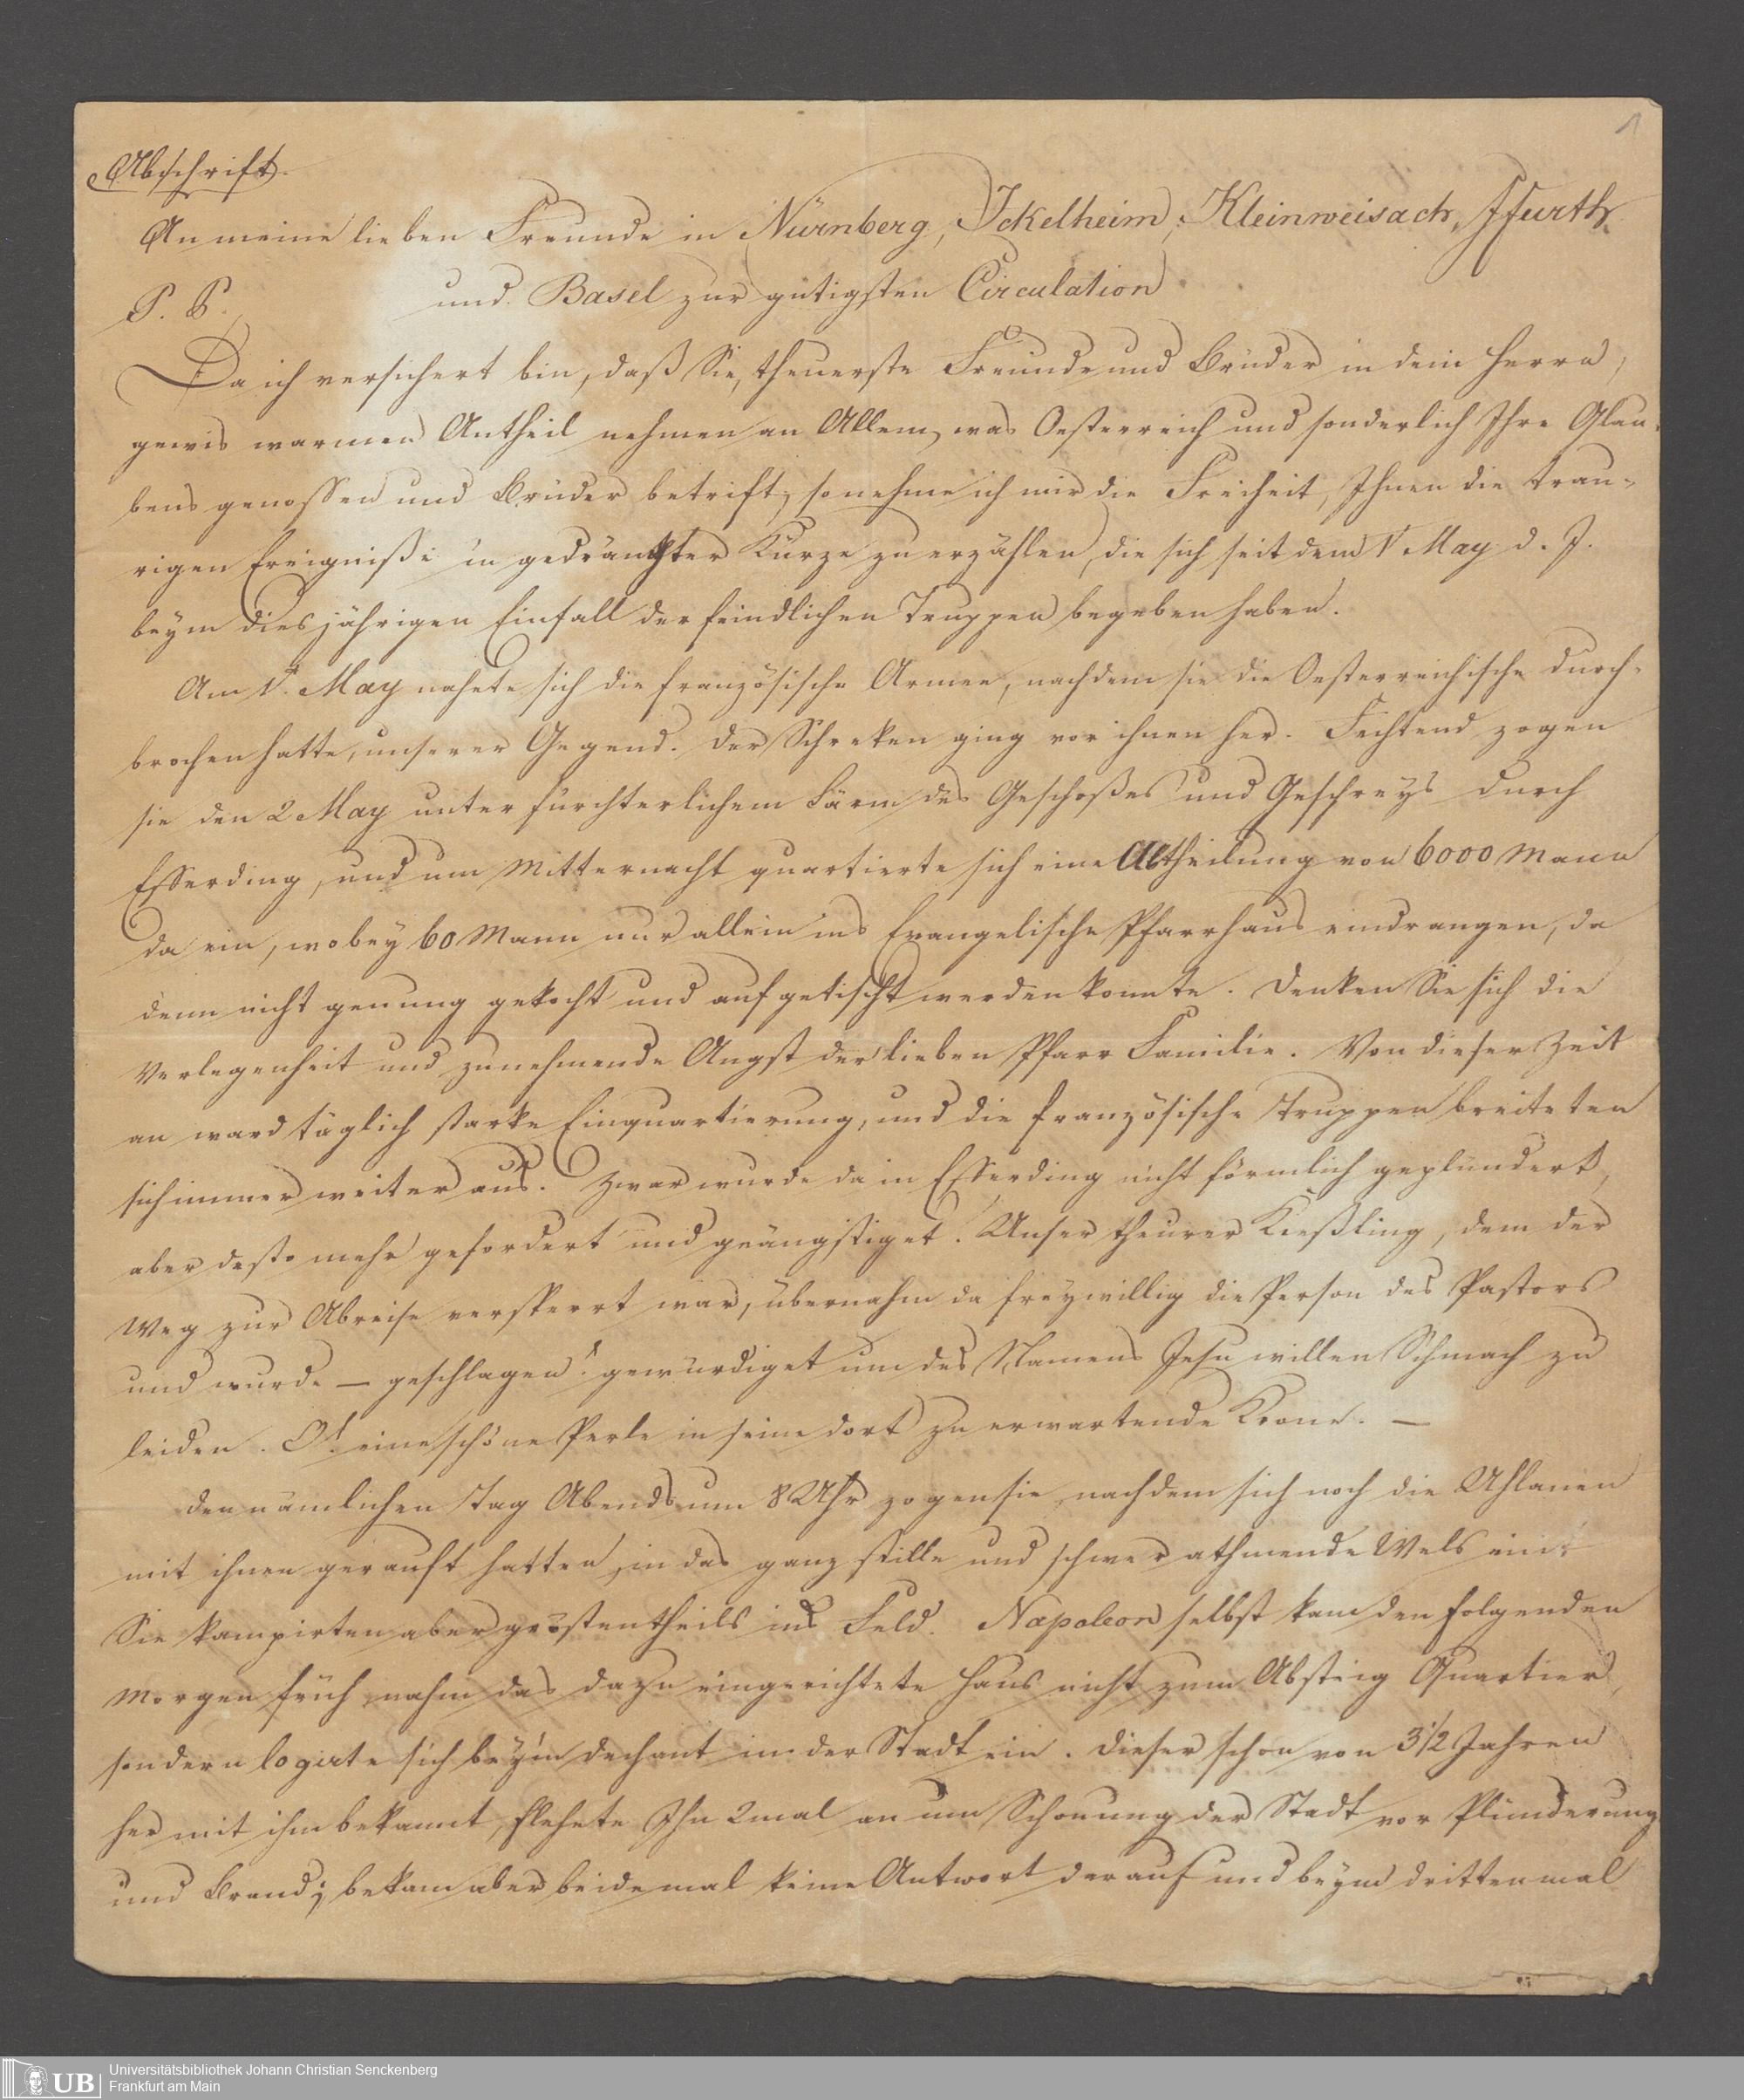 1
Abschrift.
An meine lieben Freunde in Nürnberg, Ickelheim, Kleinweisach, Ffurth
und Basel zur gütigsten Circulation
P. P.
Da ich versichert bin, daß Sie, theuerste Freunde und Brüder in dem Herrn,
gewis warmen Antheil nehmen an Allem, was Oesterreich und sonderlich Ihre Glau-
bens genossen und Brüder betrift, so nehme ich mir die Freiheit, Ihnen die trau-
rigen Ereigniße in gedrängter Kürze zu erzählen, die sich seit dem 1t May d. J.
beym diesjährigen Einfall der feindlichen Truppen begeben haben.
Am 1t. May nahete sich die französische Armee, nachdem sie die Oesterreichische durch-
brochen hatte, unserer Gegend. Der Schreken ging vor ihnen her. Fechtend zogen
sie den 2 May unter fürchterlichem Lärm des Geschoßes und Geschreys durch
Efferding, und um Mitternacht quartierte sich eine Abtheilung von 6000 Mann
da ein, wobey 60 Mann nur allein ins Evangelische Pfarrhaus eindrangen, da
denn nicht genung gekocht und aufgetischt werden konnte. Denken Sie sich die
Verlegenheit und zunehmende Angst der lieben Pfarr Familie. Von dieser Zeit
an ward täglich starke Einquartierung, und die französische Truppen breiteten
sich immer weiter aus. Zwar wurde da in Efferding nicht förmlich geplündert,
aber desto mehr gefordert und geängstiget. Unser theurer Kießling, dem der
Weg zur Abreise versperrt war, übernahm da freywillig die Person des Pastors
und wurde — geschlagen! gewürdiget um des Namens Jesu willen Schmach zu
leiden. O! eine schöne Perle in seine dort zu erwartende Krone. —
Den nämlichen Tag Abends um 8 Uhr zogen sie, nachdem sich noch die Uhlanen
mit ihnen gerauft hatten, in das ganz stille und schwer athmende Wels ein.
Sie kampirten aber gröstentheils im Feld. Napoleon selbst kam den folgenden
Morgen früh, nahm das dazu eingerichtete Haus nicht zum Absteig Quartier,
sondern logirte sich beym Dechant in der Stadt ein. Dieser schon von 3 1/2 Jahren
her mit ihm bekannt, flehete Ihn 2mal an um Schonung der Stadt vor Plünderung
und Brand; bekam aber beidemal keine Antwort darauf und beym drittenmal
UB
Universitätsbibliothek Johann Christian Senckenberg
Frankfurt am Main